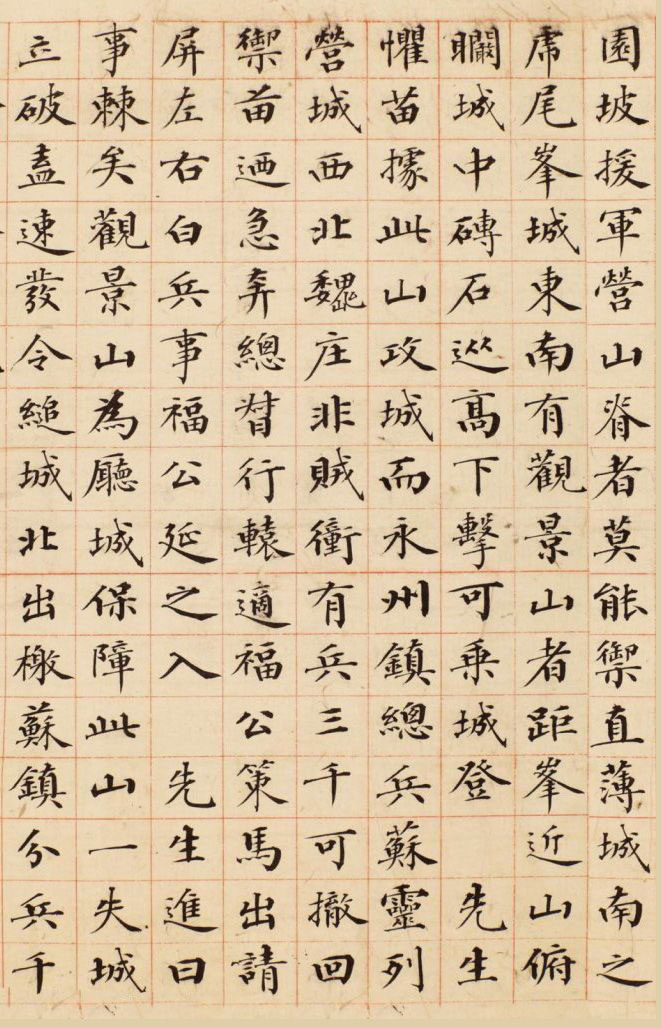 園坡援軍營山脊者莫能禦直薄城南之
虎尾峯城東南有觀景山者距峯近山俯
瞯城中磚石巡高下擊可乗城登　先生
懼苗據此山攻城而永州鎮總兵蘇靈列
營城西北魏庄非賊衝有兵三千可撤回
禦苗迺急奔總督行轅適福公策馬出請
屏左右白兵事福公延之入　先生進曰
事棘矣觀景山為廳城保障此山一失城
立破盍速發令縋城北出檄蘇鎮分兵千